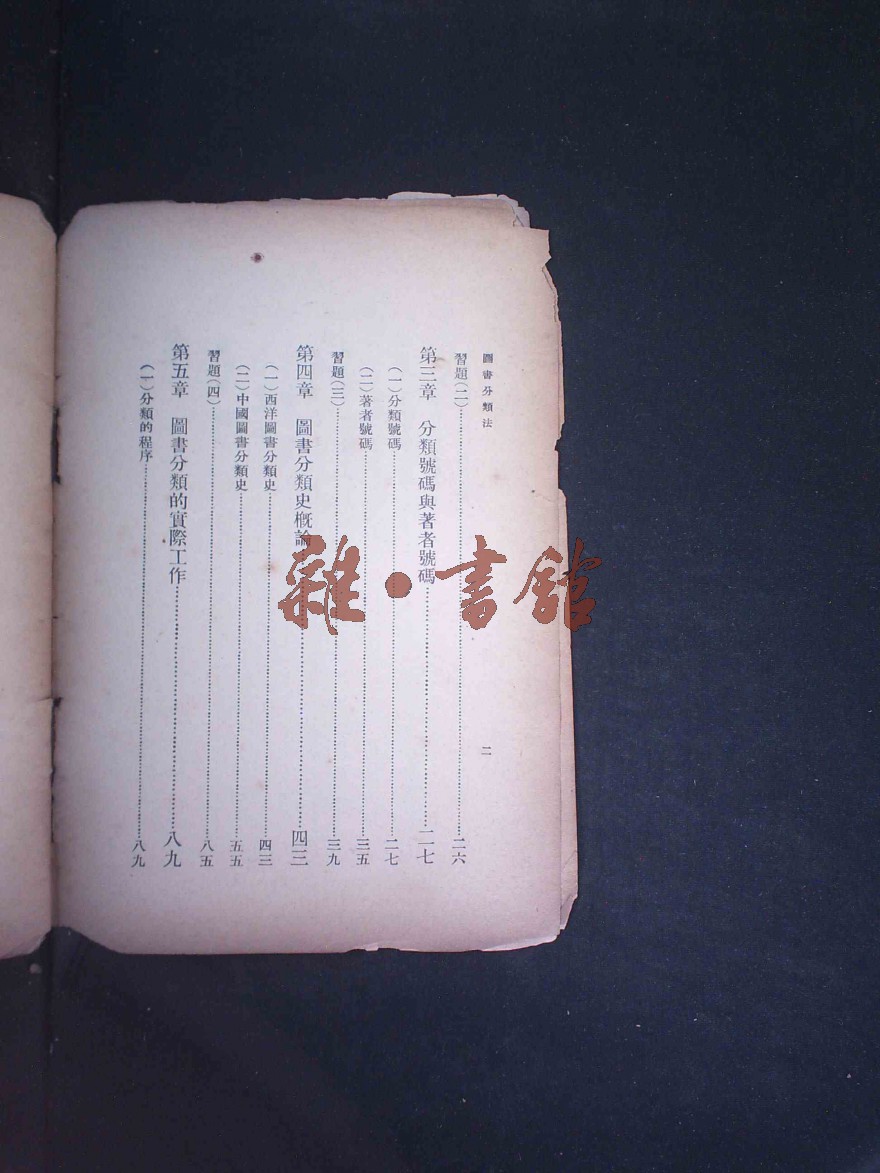 圖書分類法
二
習題(二)……二六
第三章 分類號碼與著者號碼……二七
(一)分類號碼……二七
(二)著者號碼……三五
習題(三)……三九
第四章 圖書分類史概論……四三
(一)西洋圖書分類史……四三
(二)中國圖書分類史……五五
習題(四)……八五
第五章 圖書分類的實際工作……八九
(一)分類的程序……八九
雜·書館